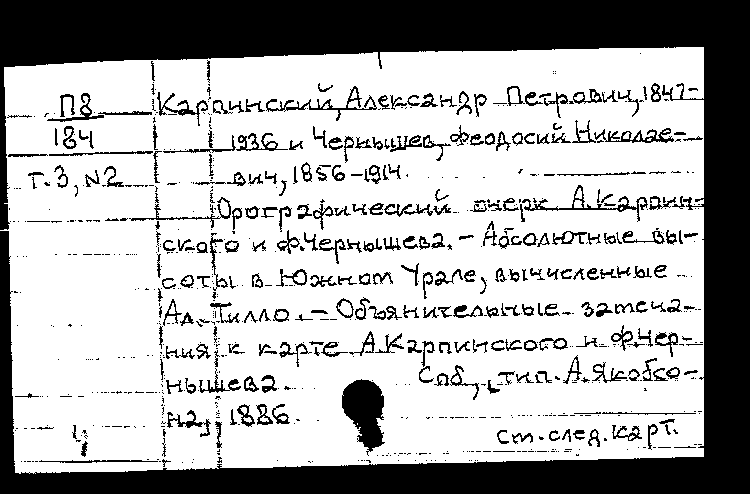 П8 Карпинский, Александр Петрович, 1847-
184 1936 и Чернышев, Феодосий Николае-
т.3, N2 вич, 1856-1914.
Орографический очерк А.Карпин-
ского и Ф.Чернышева. - Абсолютные вы-
соты в Южном Урале, вычисленные
Ал. Тилло. - Объянительные замеча-
ния к карте А.Карпинского и Ф.Чер-
нышева. Спб, тип. А.Якобсо-
на, 1886.
ст. след. карт.